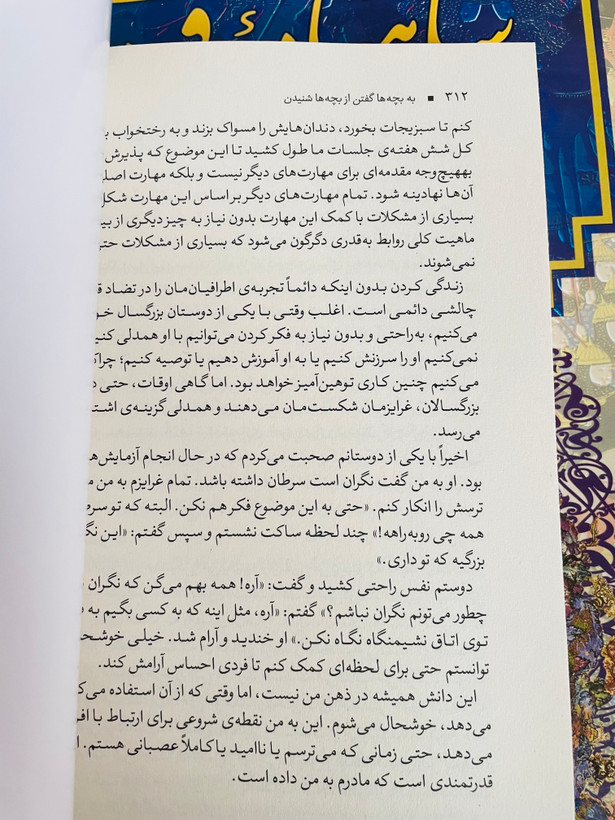 ۳۱۲ ■ به بچه‌ها گفتن از بچه‌ها شنیدن
کنم تا سبزیجات بخورد، دندان‌هایش را مسواک بزند و به رختخواب
کل شش هفته‌ی جلسات ما طول کشید تا این موضوع که پذیرش
به‌هیچ‌وجه مقدمه‌ای برای مهارت‌های دیگر نیست و بلکه مهارت
آن‌ها نهادینه شود. تمام مهارت‌های دیگر بر اساس این مهارت
بسیاری از مشکلات با کمک این مهارت بدون نیاز به چیز دیگری از
ماهیت کلی روابط به‌قدری دگرگون می‌شود که بسیاری از مشکلات
نمی‌شوند.
زندگی کردن بدون اینکه دائماً تجربه‌ی اطرافیان‌مان را در تضاد
چالشی دائمی است. اغلب وقتی با یکی از دوستان بزرگسال
می‌کنیم، به‌راحتی و بدون نیاز به فکر کردن می‌توانیم با او همدلی
نمی‌کنیم او را سرزنش کنیم یا به او آموزش دهیم یا توصیه کنیم؛
می‌کنیم چنین کاری توهین‌آمیز خواهد بود. اما گاهی اوقات، حتی
بزرگسالان، غرایزمان شکست‌مان می‌دهند و همدلی گزینه‌ی
می‌رسد.
اخیراً با یکی از دوستانم صحبت می‌کردم که در حال انجام
بود. او به من گفت نگران است سرطان داشته باشد. تمام غرایزم به من
ترسش را انکار کنم. «حتی به این موضوع فکر هم نکن. البته که تو
همه چی روبه‌راهه!» چند لحظه ساکت نشستم و سپس گفتم: «این
بزرگیه که تو داری.»
دوستم نفس راحتی کشید و گفت: «آره! همه بهم می‌گن که نگران
چطور می‌تونم نگران نباشم؟» گفتم: «آره، مثل اینه که به کسی بگیم به
توی اتاق نشیمنگاه نگاه نکن.» او خندید و آرام شد. خیلی
توانستم حتی برای لحظه‌ای کمک کنم تا فردی احساس آرامش کند.
این دانش همیشه در ذهن من نیست، اما وقتی که از آن استفاده
می‌دهد، خوشحال می‌شوم. این به من نقطه‌ی شروعی برای ارتباط با
می‌دهد، حتی زمانی که می‌ترسم یا ناامید یا کاملاً عصبانی هستم.
قدرتمندی است که مادرم به من داده است.